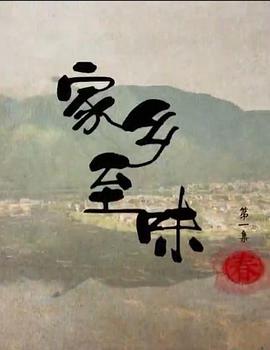 家乡至味
第一集
春